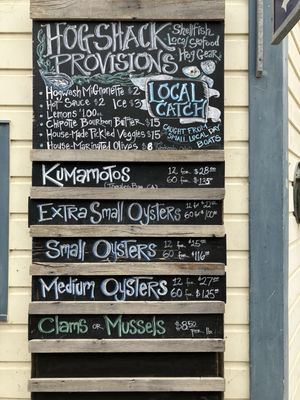 Hog Shack
Provisions
Shellfish
Local Seafood
Hog Gear
Hogwash Mignonette $2
Hot Sauce $2 Ice $3
Lemons $1.00
Chipotle Bourbon Butter $15
House-Made Pickled Veggies $15
House-Marinated Olives $8
Local
Catch
Caught from
small local day
boats
Kumamotos
12 for $28
60 for $135
Extra Small Oysters
60 for $100
Small Oysters
12 for $25
60 for $116
Medium Oysters
12 for $27
60 for $125
Clams or Mussels $8.50 per lb